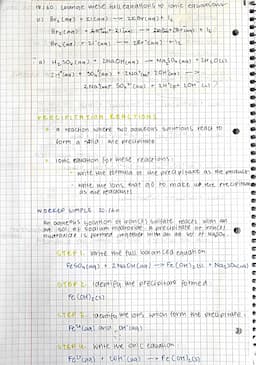 change these full equations to ionic equations
Br₂(aq) + 2I⁻(aq) → 2Br⁻(aq) + I₂
a) H₂SO₄(aq) + 2NaOH(aq) → Na₂SO₄(aq) + 2H₂O(l)
PRECIPITATION REACTIONS
a reaction where two aqueous solutions react to
form a solid precipitate
ionic equation for these reactions:
write the formula of the precipitate as the product
write the ions that go to make up the precipitate
as the reactants
WORKED SAMPLE
An aqueous solution of iron(II) sulfate reacts with an
aq. sol. of sodium hydroxide. A precipitate of iron(II)
hydroxide is formed, together with an aq. sol. of Na₂SO₄.
STEP 1: Write the full balanced equation
FeSO₄(aq) + 2NaOH(aq) → Fe(OH)₂(s) + Na₂SO₄(aq)
STEP 2: Identify the precipitate formed.
Fe(OH)₂(s)
STEP 3: Identify the ions which form the precipitate.
Fe²⁺(aq) and OH⁻(aq)
STEP 4: Write the ionic equation
Fe²⁺(aq) + 2OH⁻(aq) → Fe(OH)₂(s)